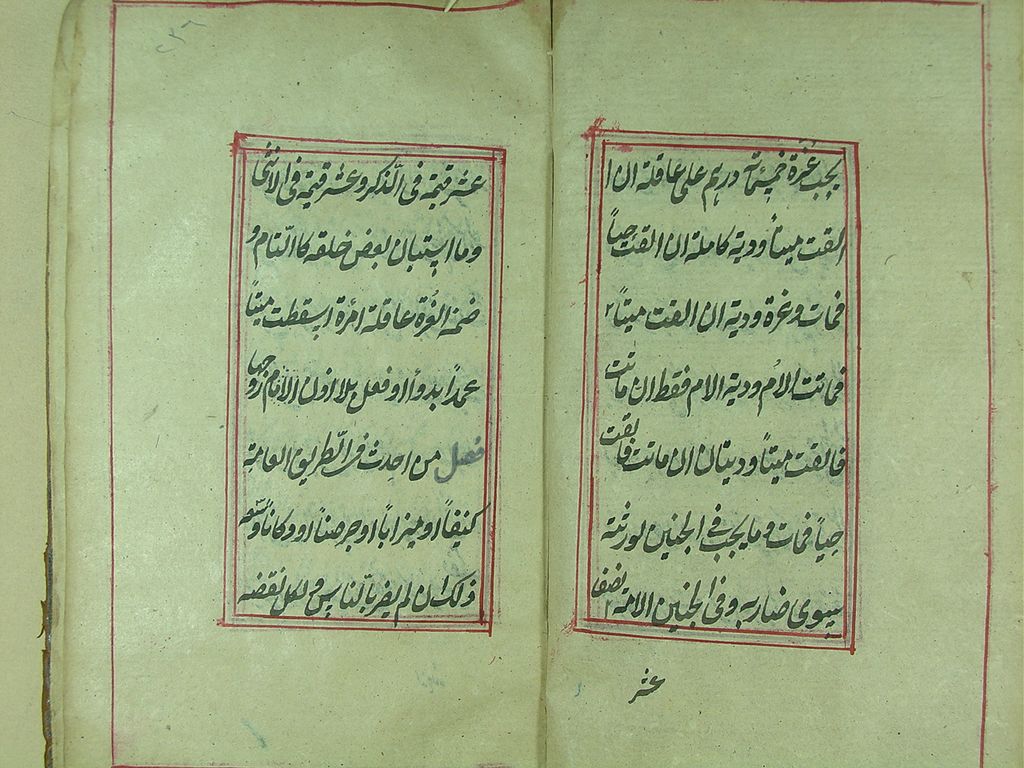 يجب غرة خمسمائة درهم على عاقلة ان ا
لقت ميتاً ودية كاملة ان القت حياً
فمات وغرة ودية ان القت ميتاً
فماتت الاُم ودية الام فقط ان ماتت
فالقت ميتاً وديتان ان ماتت فالقت
حياً فمات وما يجب فى الجنين لورثته
سوى ضاربه وفى الجنين الامة نصف
عشر
عشر قيمته فى الذكر وعشر قيمته فى الانثى
وما استبان بعض خلقه كالتام و
ضمن الغُرة عاقلة امرُة اسقطت ميتاً
عمداً بدوأ او فعل بلا اذن الا فان زوجها
فصل من احدث فى الطريق العامة
كنيفاً او ميزاباً او جرصناً او دكاناً وسعه
ذلك ان لم يضر بالناس ولكل نقضه